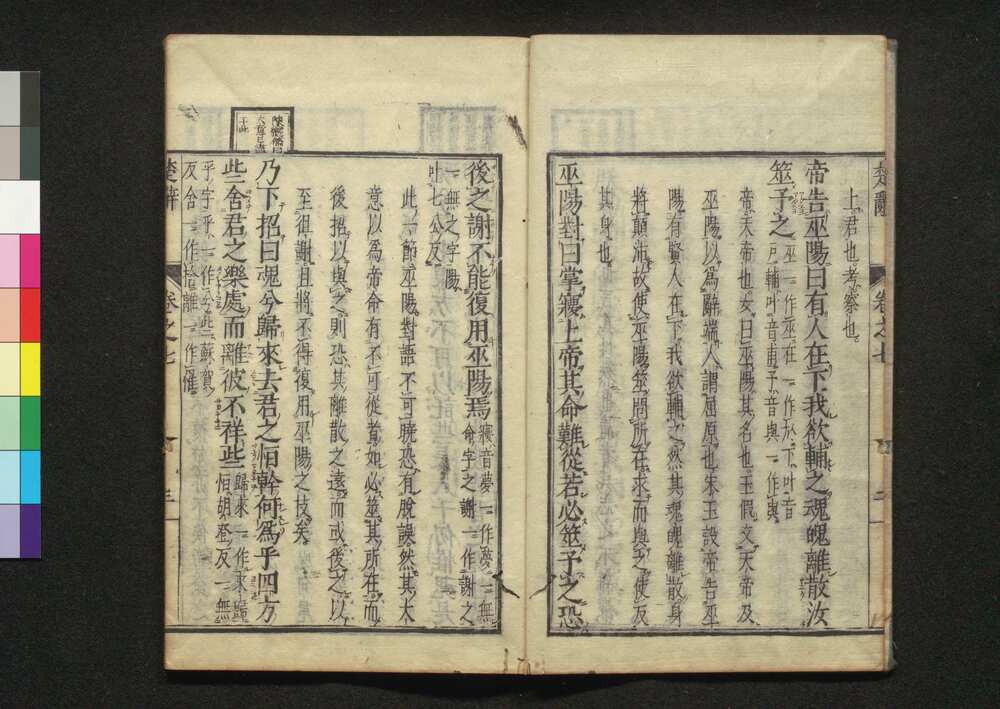 楚辭 卷之七 二
上君也考察也
帝告巫陽曰有人在下我欲輔之魂魄離散汝
筮予之 巫一作巫在一作於下叶音
戸輔叶音甫予音與一作與
帝天帝也女曰巫陽其名也玉假文天帝及
巫陽以爲辭端人謂屈原也宋玉設帝告巫
陽有賢人在下我欲輔之然其魂魄離散身
將顛沛故使巫陽筮問所在求而與之使反
其身也
巫陽對曰掌㝱上帝其命難從若必筮予之恐
後之謝不能復用巫陽焉 㝱音夢一作夢一無
命字之謝一作謝之
一無之字陽
叶七公反
此一節巫陽對語不可曉恐有脫誤然其大
意以爲帝命有不可從者如必筮其所在而
後招以與之則恐其離散之遠而或後之以
至徂謝且將不得復用巫陽之技矣
乃下招曰魂兮歸來去君之恒幹何爲乎四方
些舍君之樂處而離彼不祥些 歸來一作來歸
恒胡登反一無
乎字乎一作兮些蘇賀
反舍一作捨離一作罹
楚辭 卷之七 三